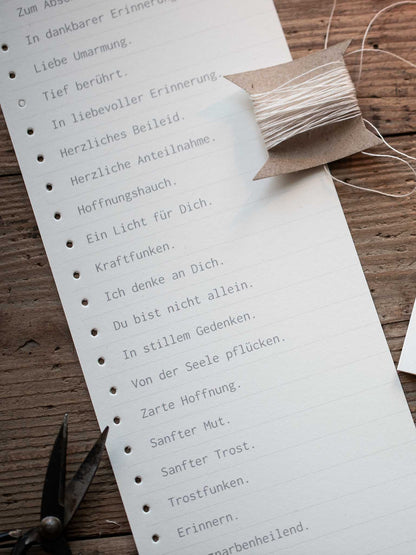 Zum
In dankbarer Erinnerung.
Liebe Umarmung.
Tief berührt.
In liebevoller Erinnerung.
Herzliches Beileid.
Herzliche Anteilnahme.
Hoffnungshauch.
Ein Licht für Dich.
Kraftfunken.
Ich denke an Dich.
Du bist nicht allein.
In stillem Gedenken.
Von der Seele pflücken.
Zarte Hoffnung.
Sanfter Mut.
Sanfter Trost.
Trostfunken.
Erinnern.